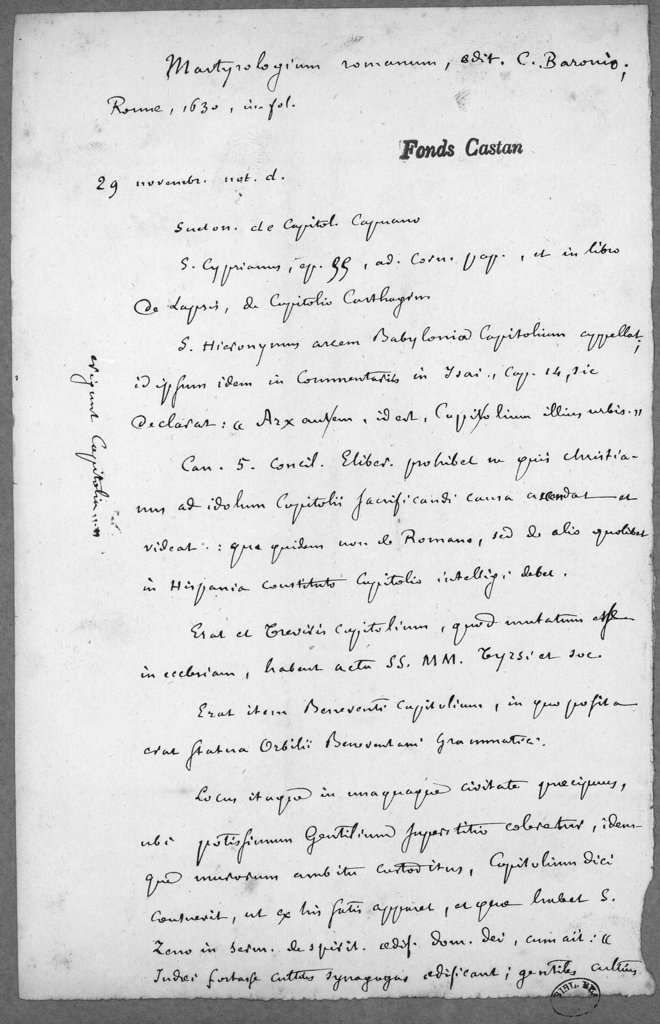 Martyrologium romanum, edit. C. Baronio;
Romae, 1630, in-fol.
Fonds Castan
29 novembr. not. d.
Sueton. de Capitol. Capuano
S. Cyprianus, ep. 55, ad. Corn. pap., et in libro
de Lapsis, de Capitolio Carthagin
S. Hieronymus arcem Babyloniae Capitolium appellat;
id ipsum idem in Commentariis in Isai., cap. 14, sic
declarat: « Arx autem, id est, Capitolium illius urbis. »
Can. 5. Concil. Eliber. prohibet ne quis christia-
nus ad idolum Capitolii sacrificandi causa ascendat et
videat .: quae quidem non de Romano, sed de alio quolibet
in Hispania constituto Capitolio intelligi debet.
Erat et Treviris Capitolium, quod mutatum esse
in ecclesiam, habent acta SS. MM. Tyrsi et soc.
Erat item Beneventi Capitolium, in quo posita
erat statua Orbilii Beneventani Grammatici.
Locus itaque in unaquaque civitate praecipuus,
ubi potissimum Gentilium superstitio coleretur, idem-
que murorum ambitu custoditus, Capitolium dici
consuevit, ut ex his satis apparet, et quae habet S.
Zeno in serm. de spirit. aedif. dom. dei, cum ait: «
Judaei fortasse cultus synagogas aedificant; gentiles cultius
erigunt Capitolia... »
BIBL. BES